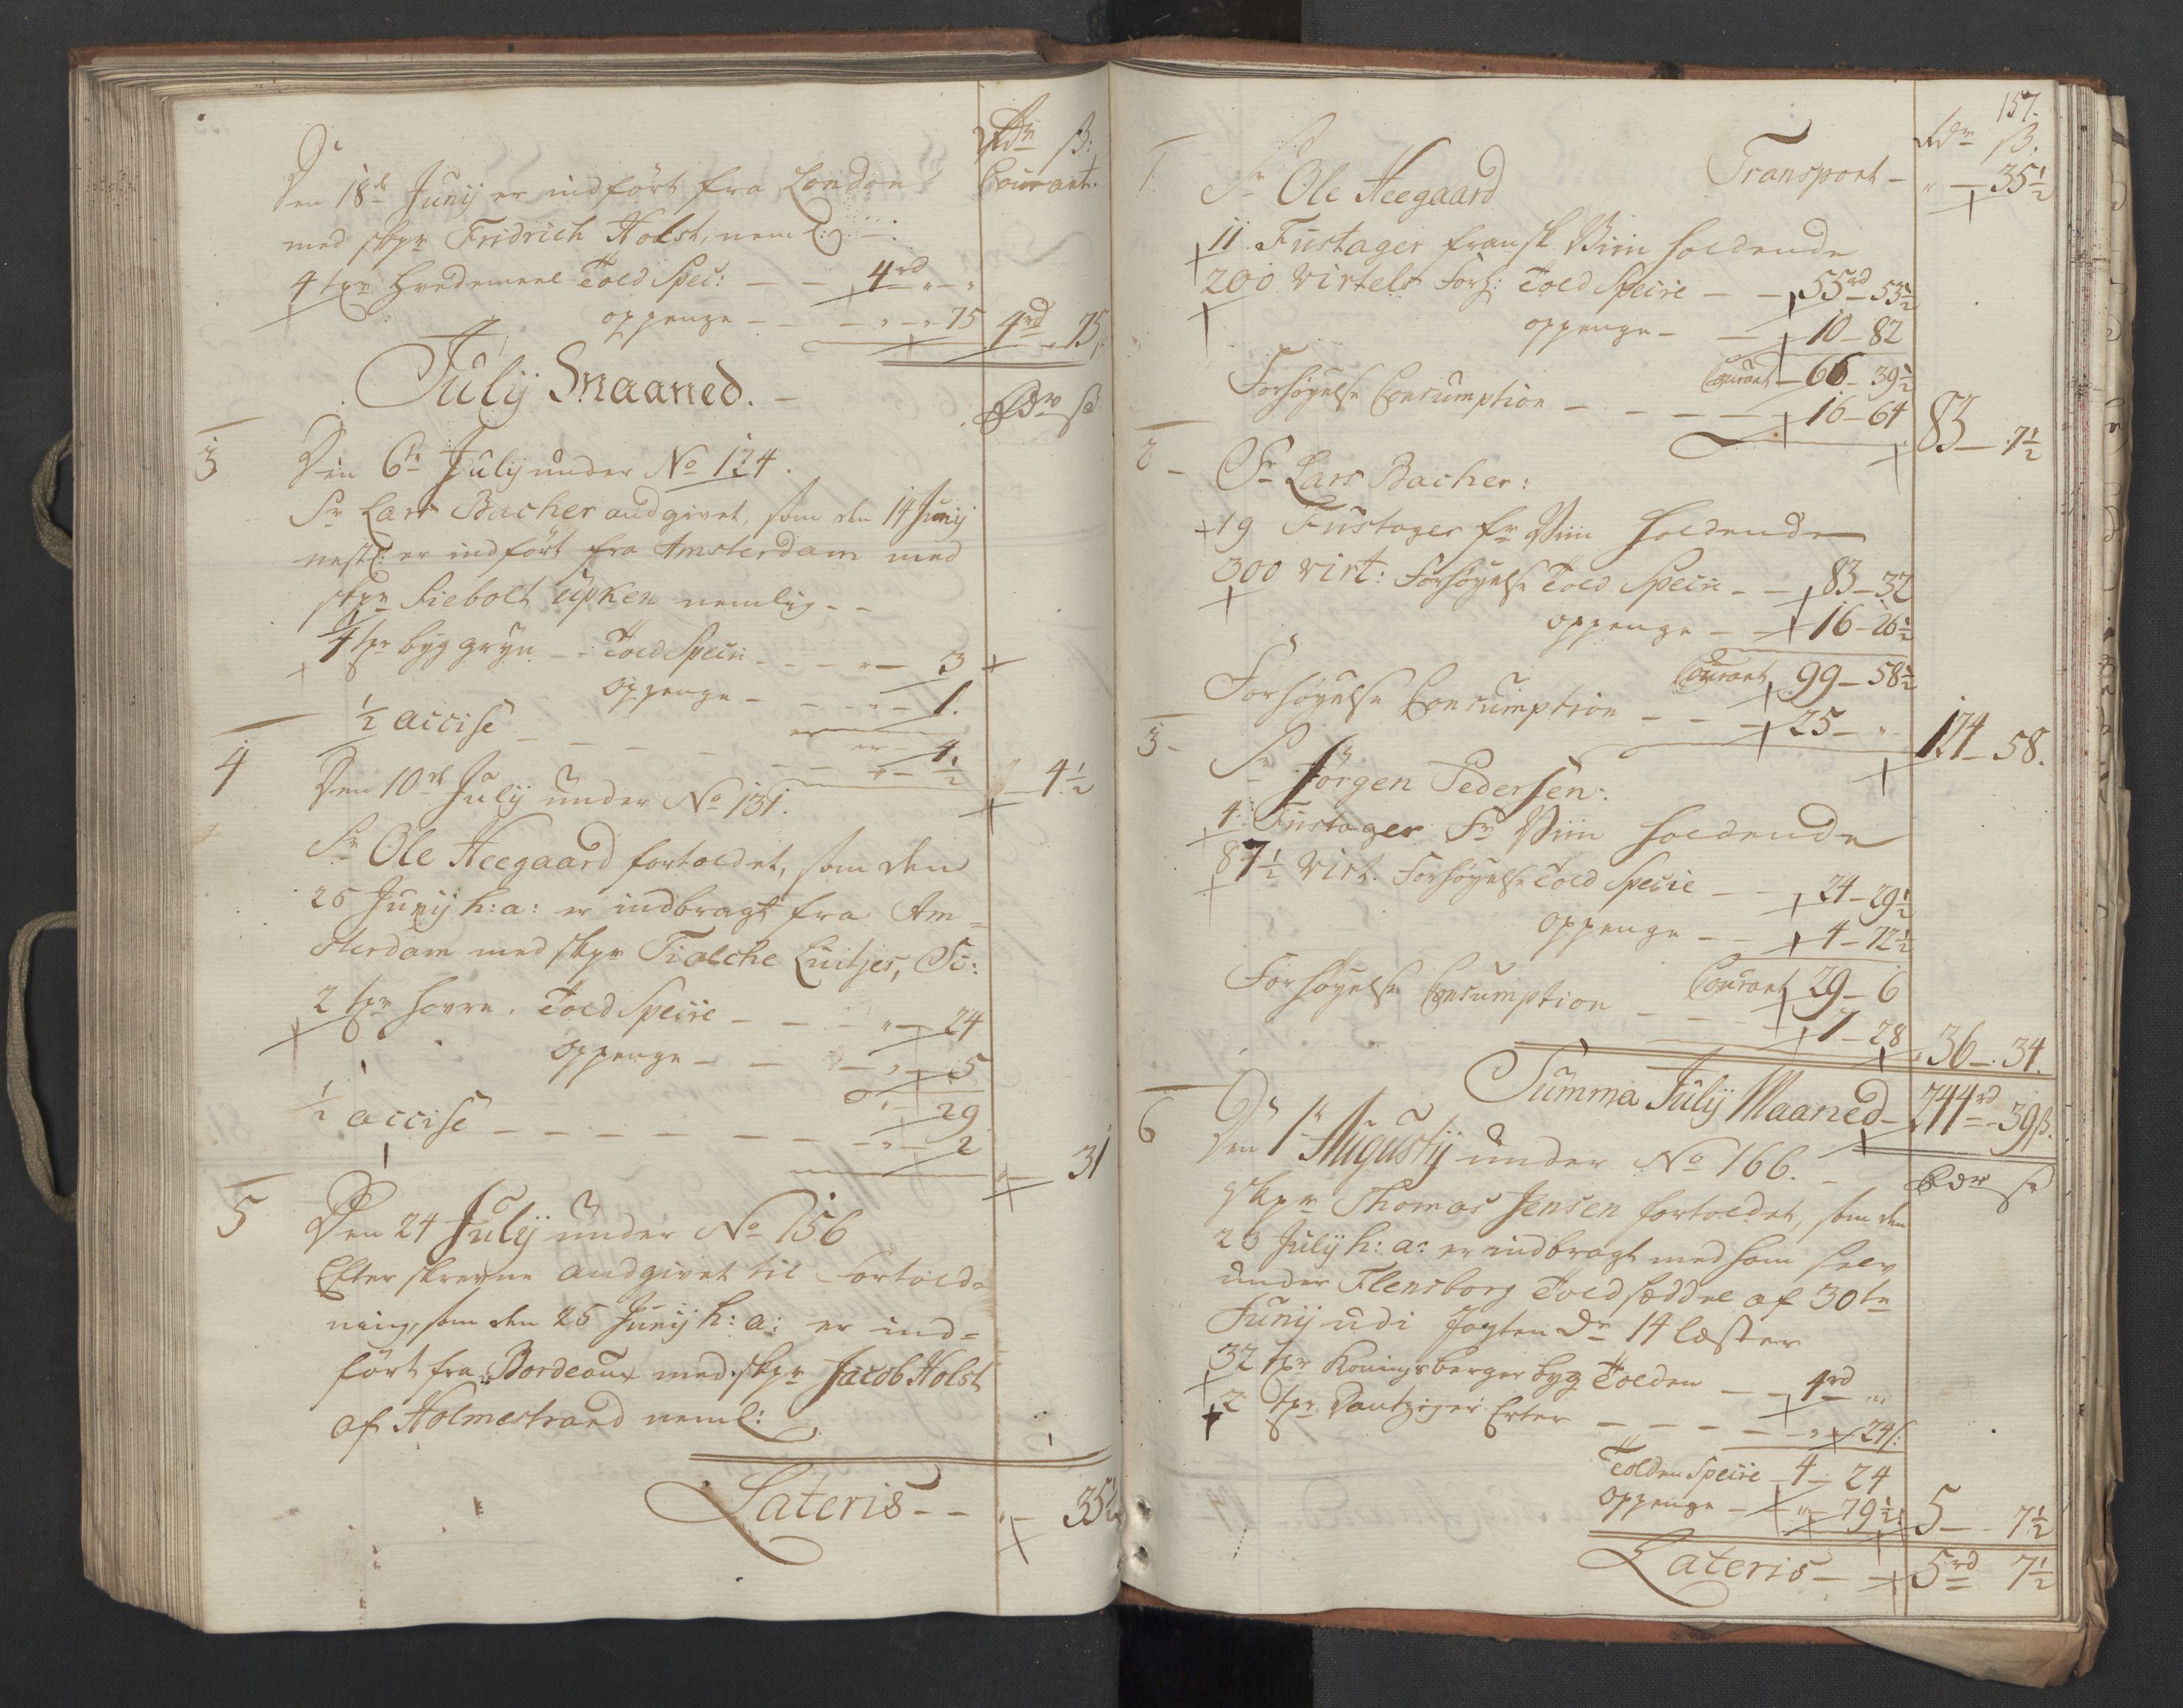 Rdr ß:
Courant.
Den 18de Junij er indført fra London
med skpr Fridrich Holst, neml:
4 tpr Hvedemeel Told Spec: — — 4rd „ — „
oppenge — — — „ — „ 75 4rd „ 75
Julij Maaned. —
Rdr ß
3 Den 6te Julij under No 124.
Sr Lars Bacher andgivet, som den 14 Junij
nestl: er indført fra Amsterdam med
skpr Siebolt üpken nemlig - -
4 tpr byg gryn - - Told Specie - - - „ — 3
oppenge — — — „ — 1.
er — 4.
½ accise — — — — — — „ — ½ „ — 4½
4 Den 10de Julij under No 131.
Sr Ole Heegaard fortoldet, som den
25 Junij h: a: er indbragt fra Am=
sterdam med skpr Tialche Luitjes,
2 tpr Havre. Told Specie — — — „ — 24
oppenge — — — „ — 5
„ — 29
½ accise — — — — — — — „ — 2
„ — 31
5 Den 24 Julij under No 156
Efterskrevne andgivet til Fortold=
ning, som den 25 Junij h: a: er ind=
ført fra Bordeaux med skpr Jacob Holst
af Holmestrand neml:
Lateris - - „ — 35½
157.
Rdr ß.
Transport — „ — 35½
1. Sr Ole Heegaard
11 Fustager fransk Viin holdende
200 Virtels Forh: Told Specie — — 55rd — 53½
oppenge — — 10 — 82
Courant — 66 — 39½
Forhøyelse Consumption — — — — 16 — 64
83 — 7½
2 - Sr Lars Bacher:
19 Fustager fr Viin holdende
300 Virt: Forhøyelse Told Specie — — 83 — 32
oppenge — — 16 — 26½
Courant 99 — 58½
Forhøyelse Consumption — — — 25 — „
124 — 58.
3 - Sr Jörgen Pedersen:
4 Fustager Fr Viin holdende
87½ Virt. Forhøyelse Told Specie — — 24 — 29½
oppenge — — 4 — 72½
Courant 29 — 6
Forhøyelse Consumption — — — 7 — 28
36 — 34.
Summa Julij Maaned — 244rd — 39ß.
Rdr ß
6 Den 1te Augustij under No 166. —
Skpr Thomas Jensen fortoldet, som den
23 Julij h: a: er indbragt med ham selv
under Flensborg Told sæddel af 30te
Junij udi Jagten dr 14 læster
32 tpr Koningsberger byg Tolden — — 4rd „
2 tpr Dantziger Erter — — — — „ — 24ß:
Tolden Specie — 4 — 24
oppenge — „ — 79½ 5 — 7½
Lateris — — 5rd 7½